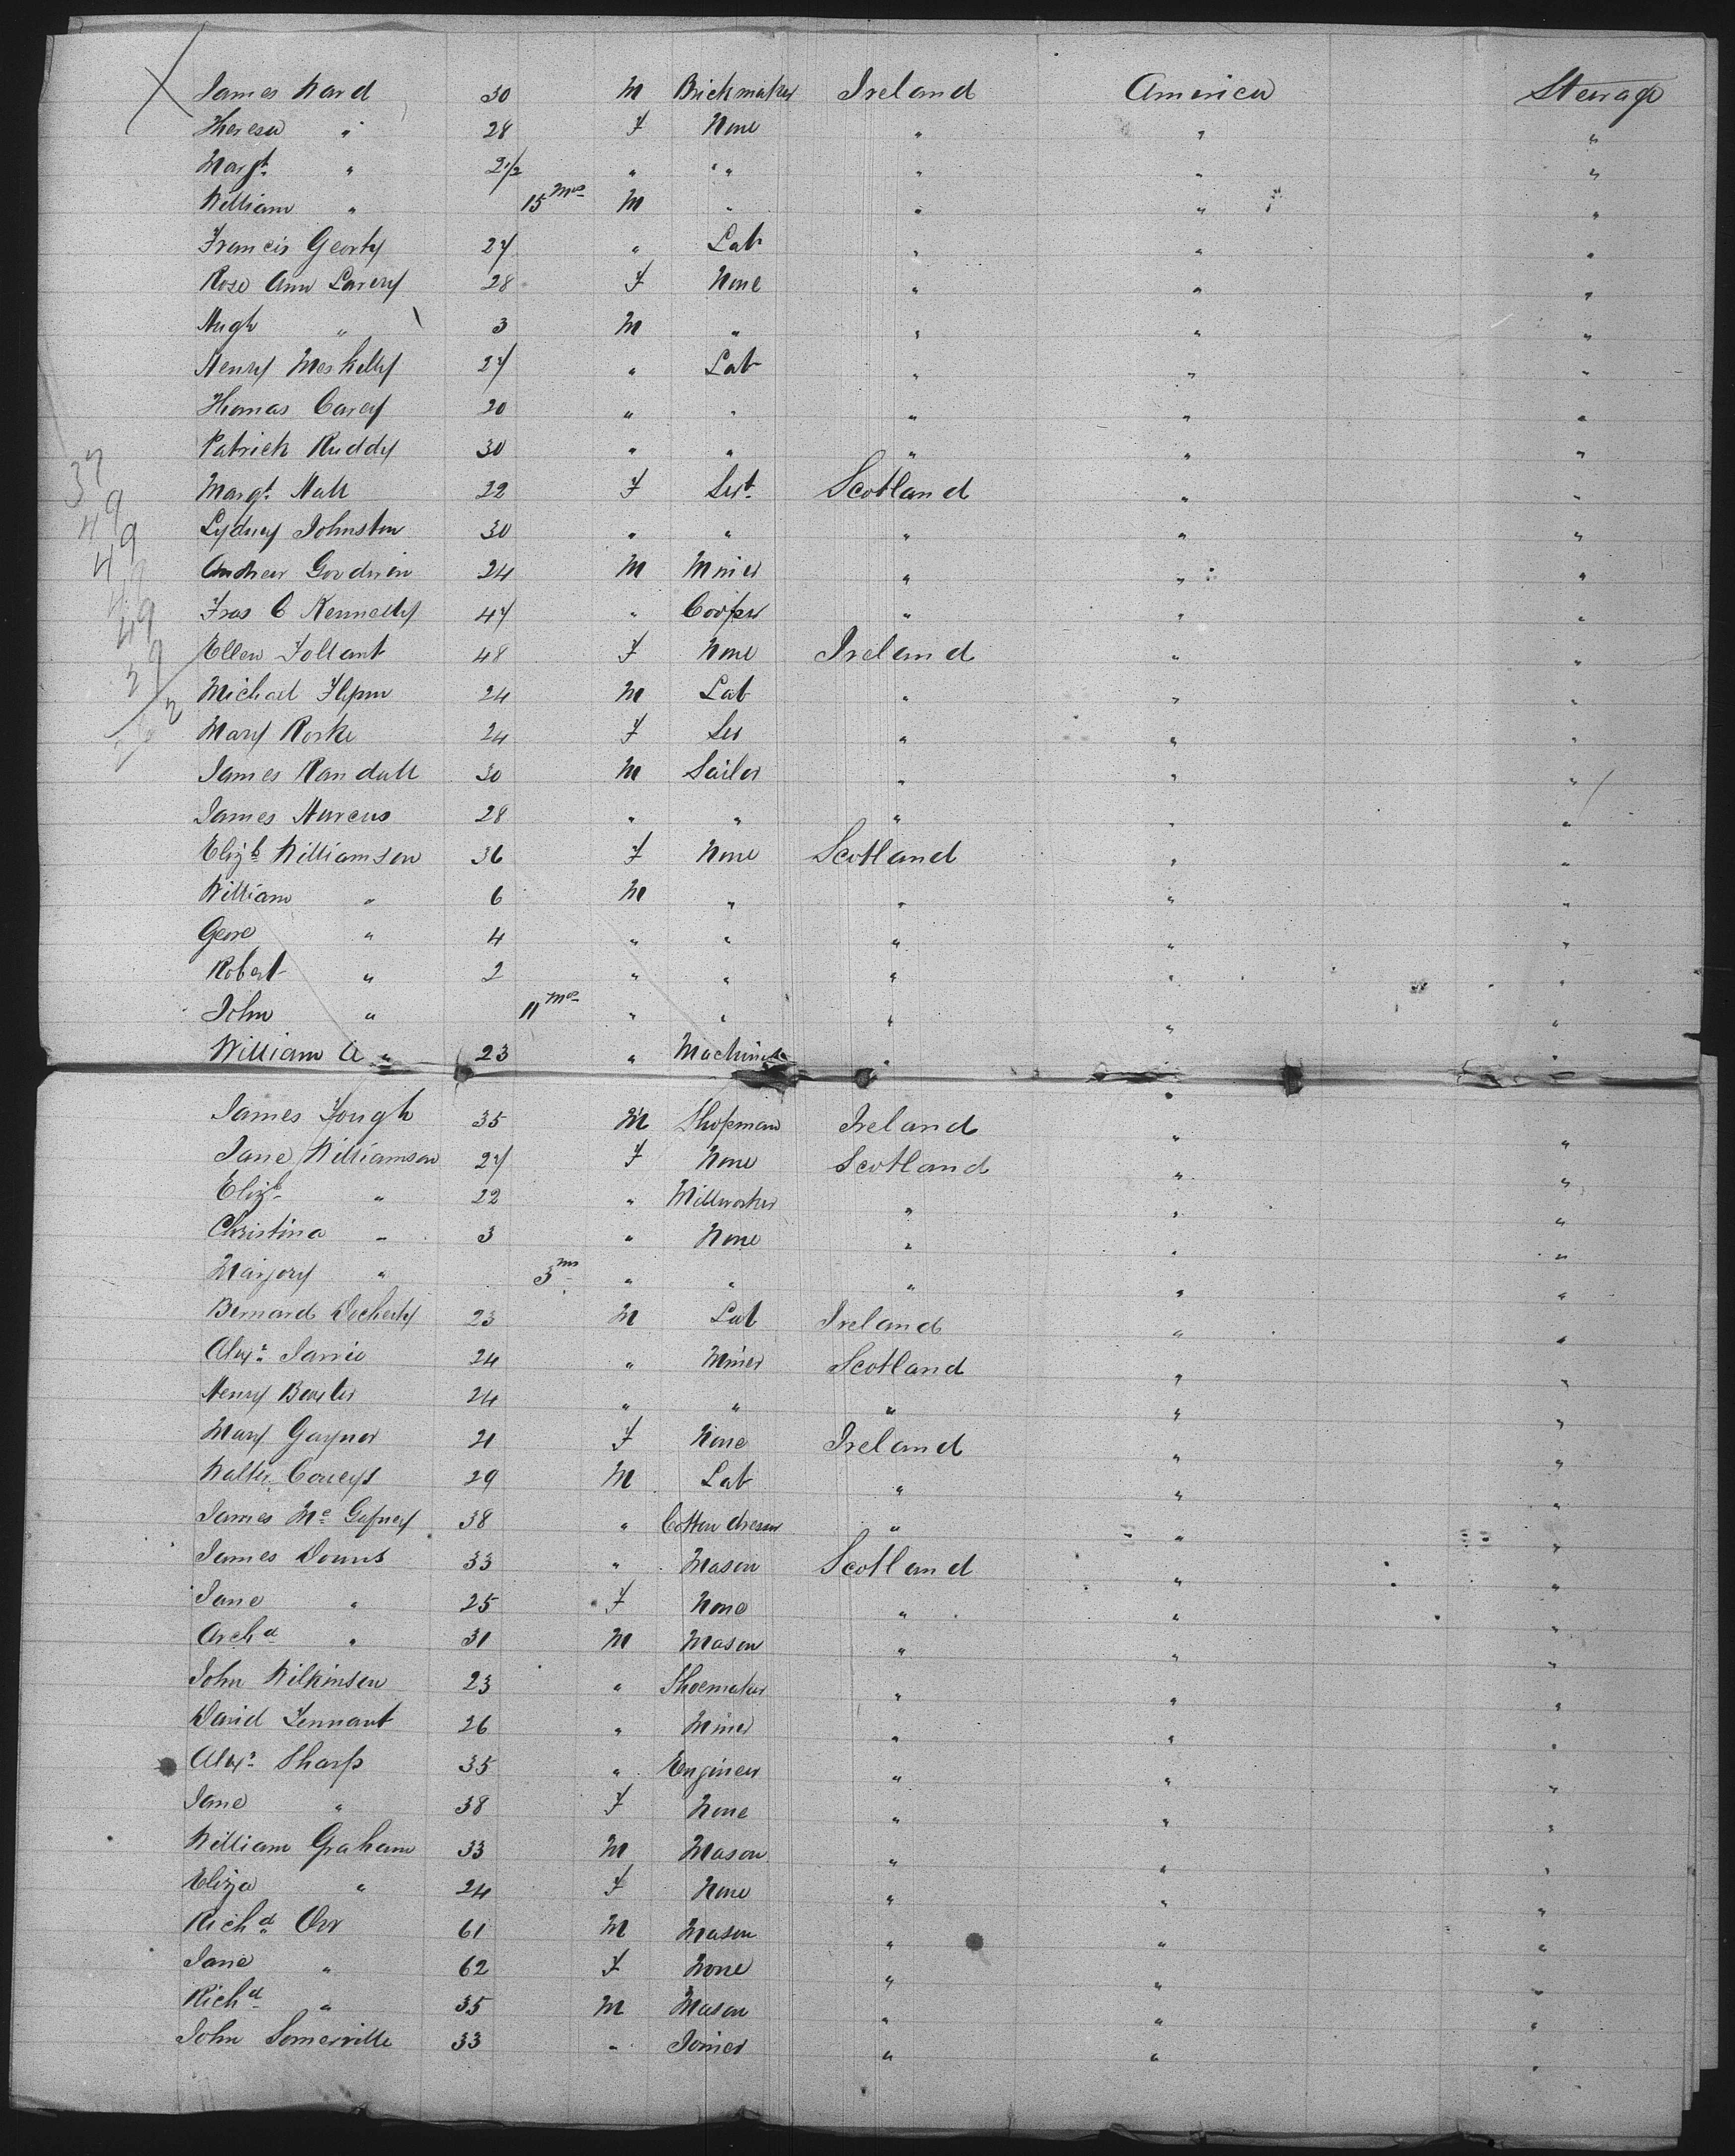 James Ward 30 M Brickmaker Ireland America Steerage
Theresa " 28 F None " " "
Margt. " 2 1/2 " " " " "
William " 15 Mos M " " " "
Francis Gearty 27 " Lab " " "
Rose Ann Lavery 28 F None " " "
Hugh " 3 M " " " "
Henry 27 " Lab " " "
Thomas Carey 20 " " " " "
Patrick Ruddy 30 " " " " "
Margt. Hall 22 F Sert. Scotland " "
Lydney Johnston 30 " " " " "
Andrew Goodwin 24 M Miner " " "
Fras C Kennelly 47 " Cooper " " "
Ellen Tollant 48 F None Ireland " "
Michael 24 M Lab " " "
Mary Rorke 24 F Ser " " "
James Randall 30 M Sailor " " "
James Marcus 28 " " " " "
Elizb Williamson 36 F None Scotland " "
William " 6 M " " " "
Geore " 4 " " " " "
Robert " 2 " " " " "
John " 11 Mos " " " " "
William A " 23 " Machinist " " "
James Tough 35 M Shopman Ireland " "
Jane Williamson 27 F None Scotland " "
Elizb " 22 " Millworker " " "
Christina " 3 " None " " "
Marjory " 3 ms " " " " "
Bernard Docherty 23 M Lab Ireland " "
Alexr. Jarvie 24 " Miner Scotland " "
Henry Baxter 24 " " " " "
Mary Gaynor 21 F None Ireland " "
Walter 29 M Lab " " "
James Mc Gafney 38 " Cotton dresser " " "
James Downs 33 " Mason Scotland " "
Jane " 25 F None " " "
Archd " 31 M Mason " " "
John Wilkinson 23 " Shoemaker " " "
David Tennant 26 " Miner " " "
Alexr. Sharp 35 " Engineer " " "
Jane " 38 F None " " "
William Graham 33 M Mason " " "
Eliza " 24 F None " " "
Richd Orr 61 M Mason " " "
Jane " 62 F None " " "
Richd " 35 M Mason " " "
John Somerville 33 " Joiner " " "
37
49
49
49
49
29